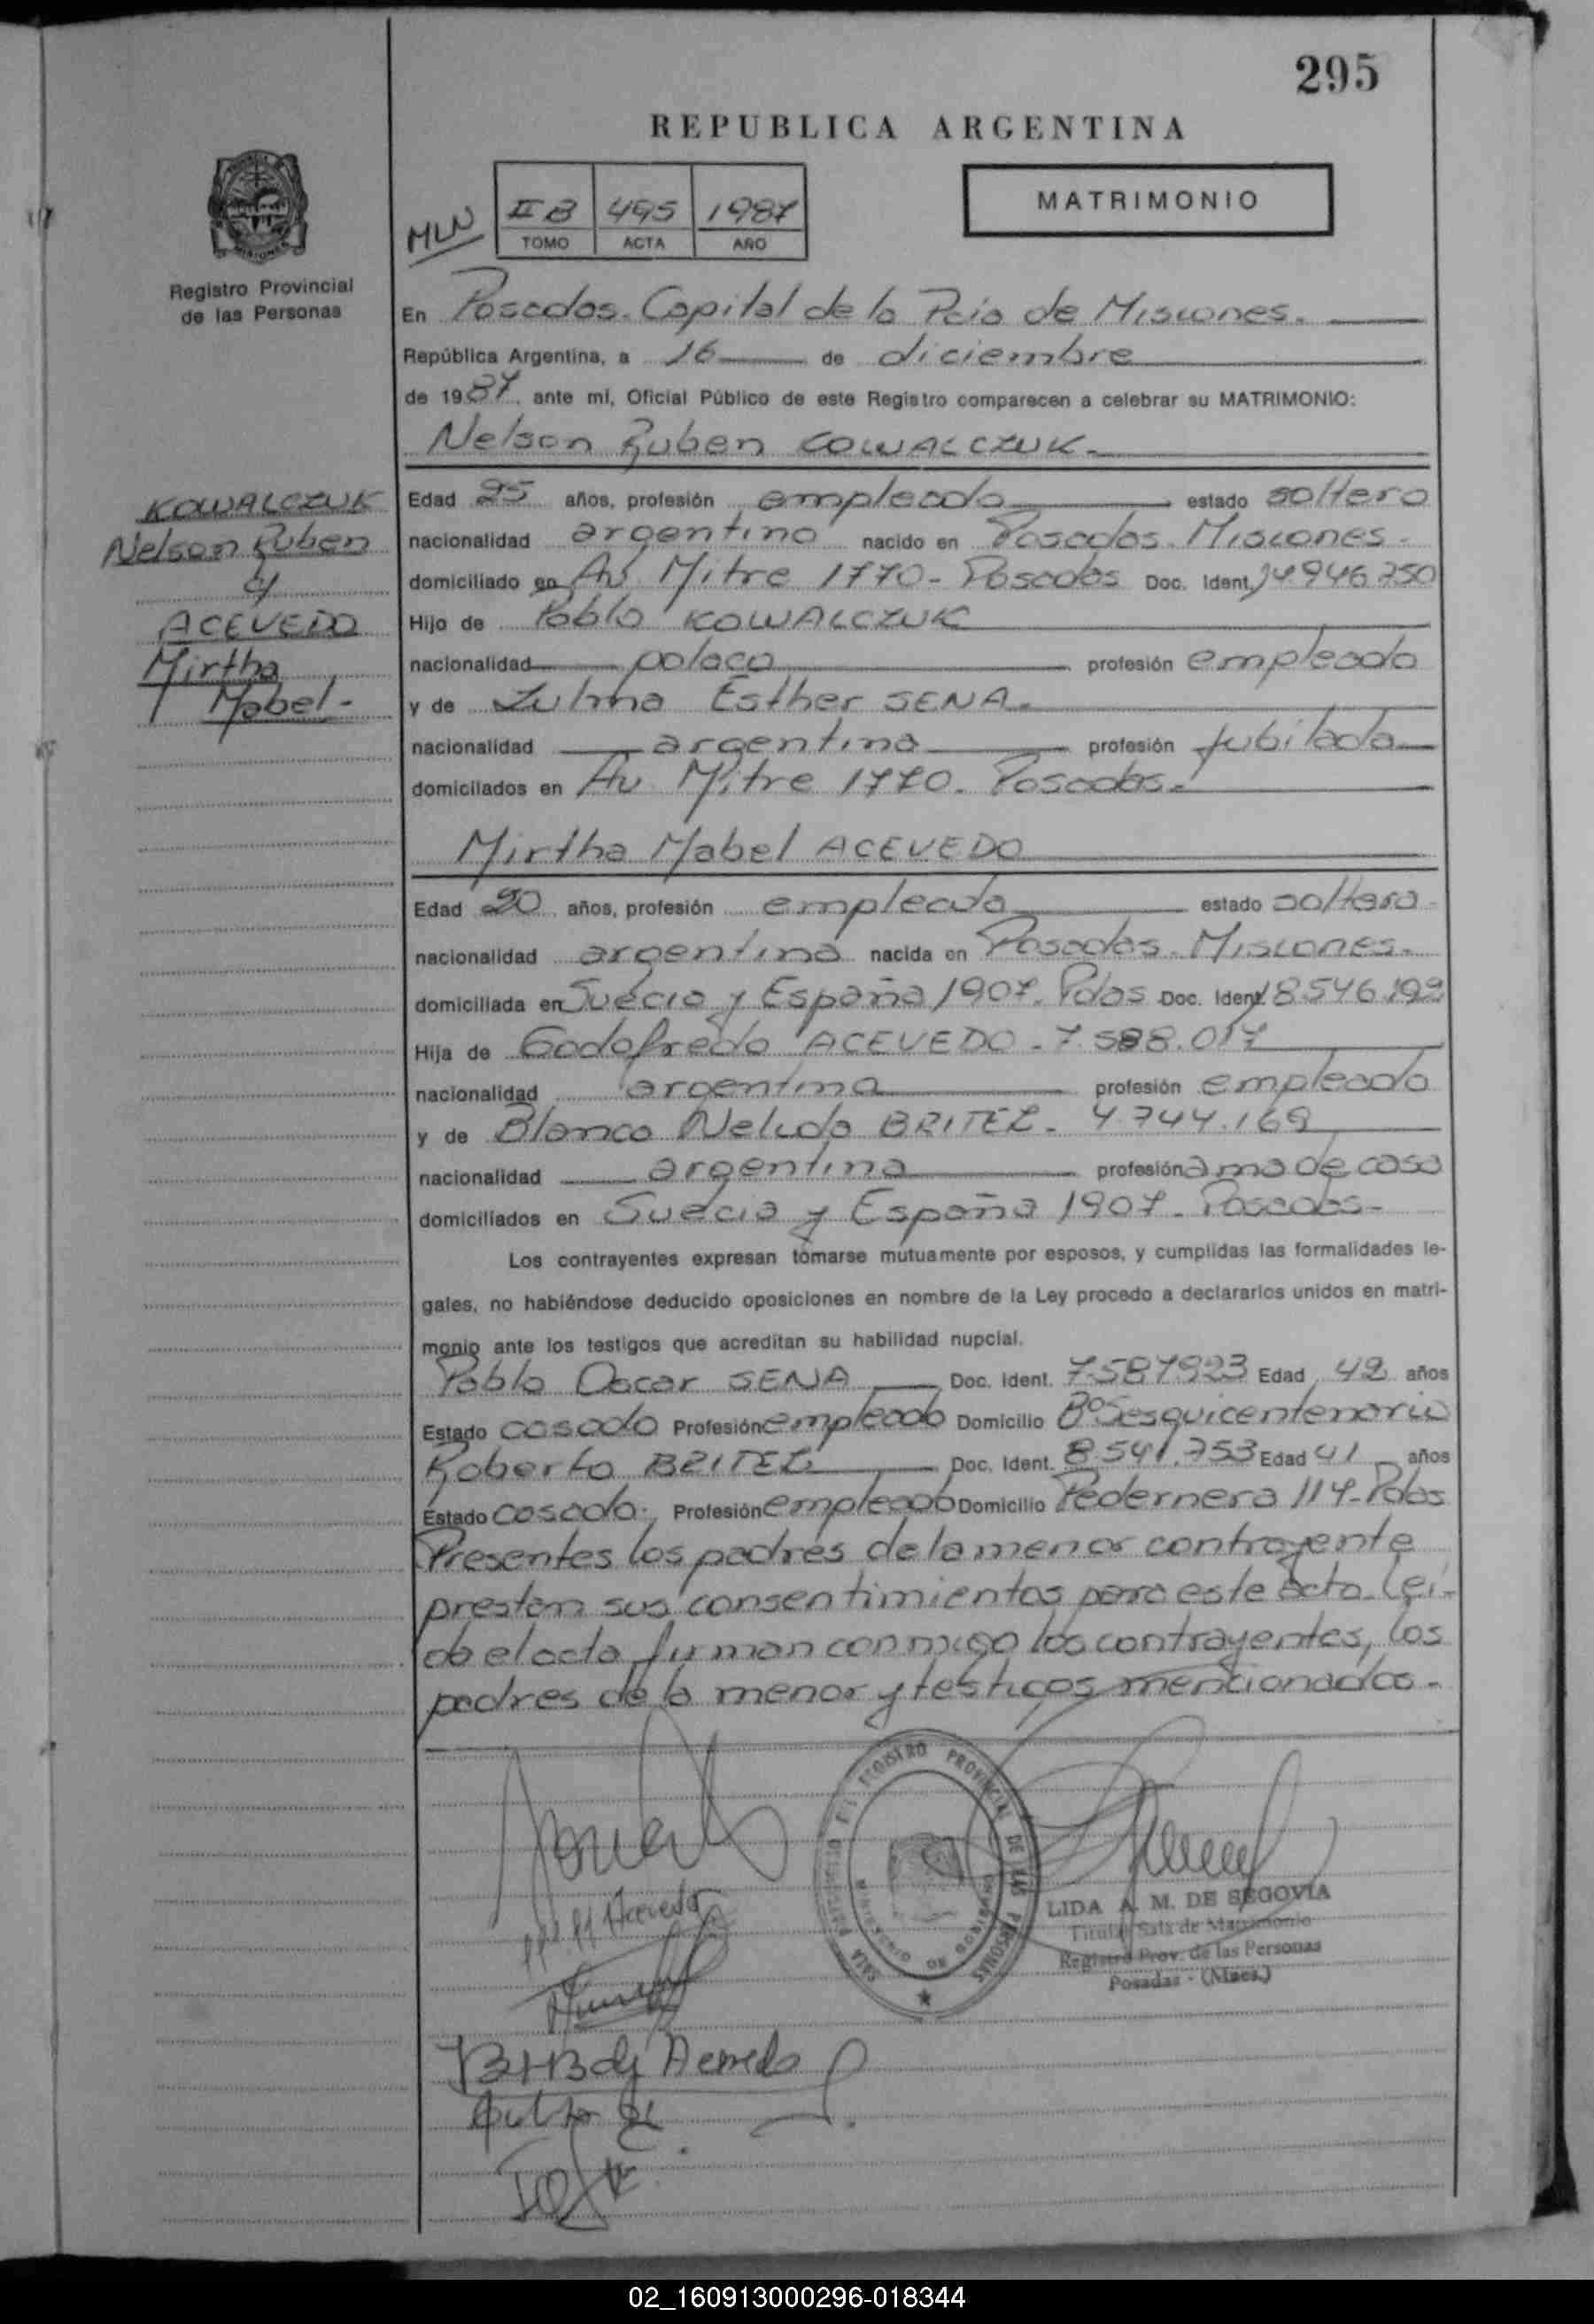 295
REPUBLICA ARGENTINA
MATRIMONIO
MLN
II B 495 1987
TOMO ACTA AÑO
Registro Provincial
de las Personas
En Posadas. Capital de la Pcia de Misiones.
República Argentina, a 16 de diciembre
de 1987, ante mí, Oficial Público de este Registro comparecen a celebrar su MATRIMONIO:
Nelson Ruben KOWALCZUK.
KOWALCZUK
Nelson Ruben
c/
ACEVEDO
Mirtha
Mabel.-
Edad 25 años, profesión empleado estado soltero
nacionalidad argentino nacido en Posadas. Misiones.
domiciliado en Av. Mitre 1770- Posadas Doc. Ident. 14.946.750
Hijo de Pablo KOWALCZUK
nacionalidad polaco profesión empleado
y de Zulma Esther SENA.
nacionalidad argentina profesión jubilada
domiciliados en Av. Mitre 1770. Posadas.
Mirtha Mabel ACEVEDO
Edad 20 años, profesión empleada estado soltera
nacionalidad argentina nacida en Posadas. Misiones.
domiciliada en Suecia y España 1907. Pdas Doc. Ident. 18.546.192
Hija de Godofredo ACEVEDO. 7.588.017
nacionalidad argentina profesión empleado
y de Blanca Nelida BRITEZ. 4.744.169
nacionalidad argentina profesión ama de casa
domiciliados en Suecia y España 1907. Posadas-
Los contrayentes expresan tomarse mutuamente por esposos, y cumplidas las formalidades le-
gales, no habiéndose deducido oposiciones en nombre de la Ley procedo a declararlos unidos en matri-
monio ante los testigos que acreditan su habilidad nupcial.
Pablo Oscar SENA Doc. Ident. 7.587923 Edad 42 años
Estado casado Profesión empleado Domicilio Bº Sesquicentenario
Roberto BRITEZ Doc. Ident. 8.541.753 Edad 41 años
Estado casado. Profesión empleado Domicilio Pedernera 114-Pdas
Presentes los padres de la menor contrayente
prestan sus consentimientos para este acto. Leí-
da el acta firman conmigo los contrayentes, los
padres de la menor y testigos mencionados.
REGISTRO PROVINCIAL DE LAS PERSONAS
LIDA A. M. DE SEGOVIA
Titular Sala de Matrimonio
Registro Prov. de las Personas
Posadas - (Mnes.)
Acevedo
02_160913000296-018344